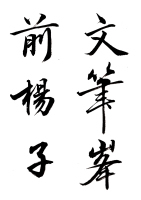 文筆峯
前楊子